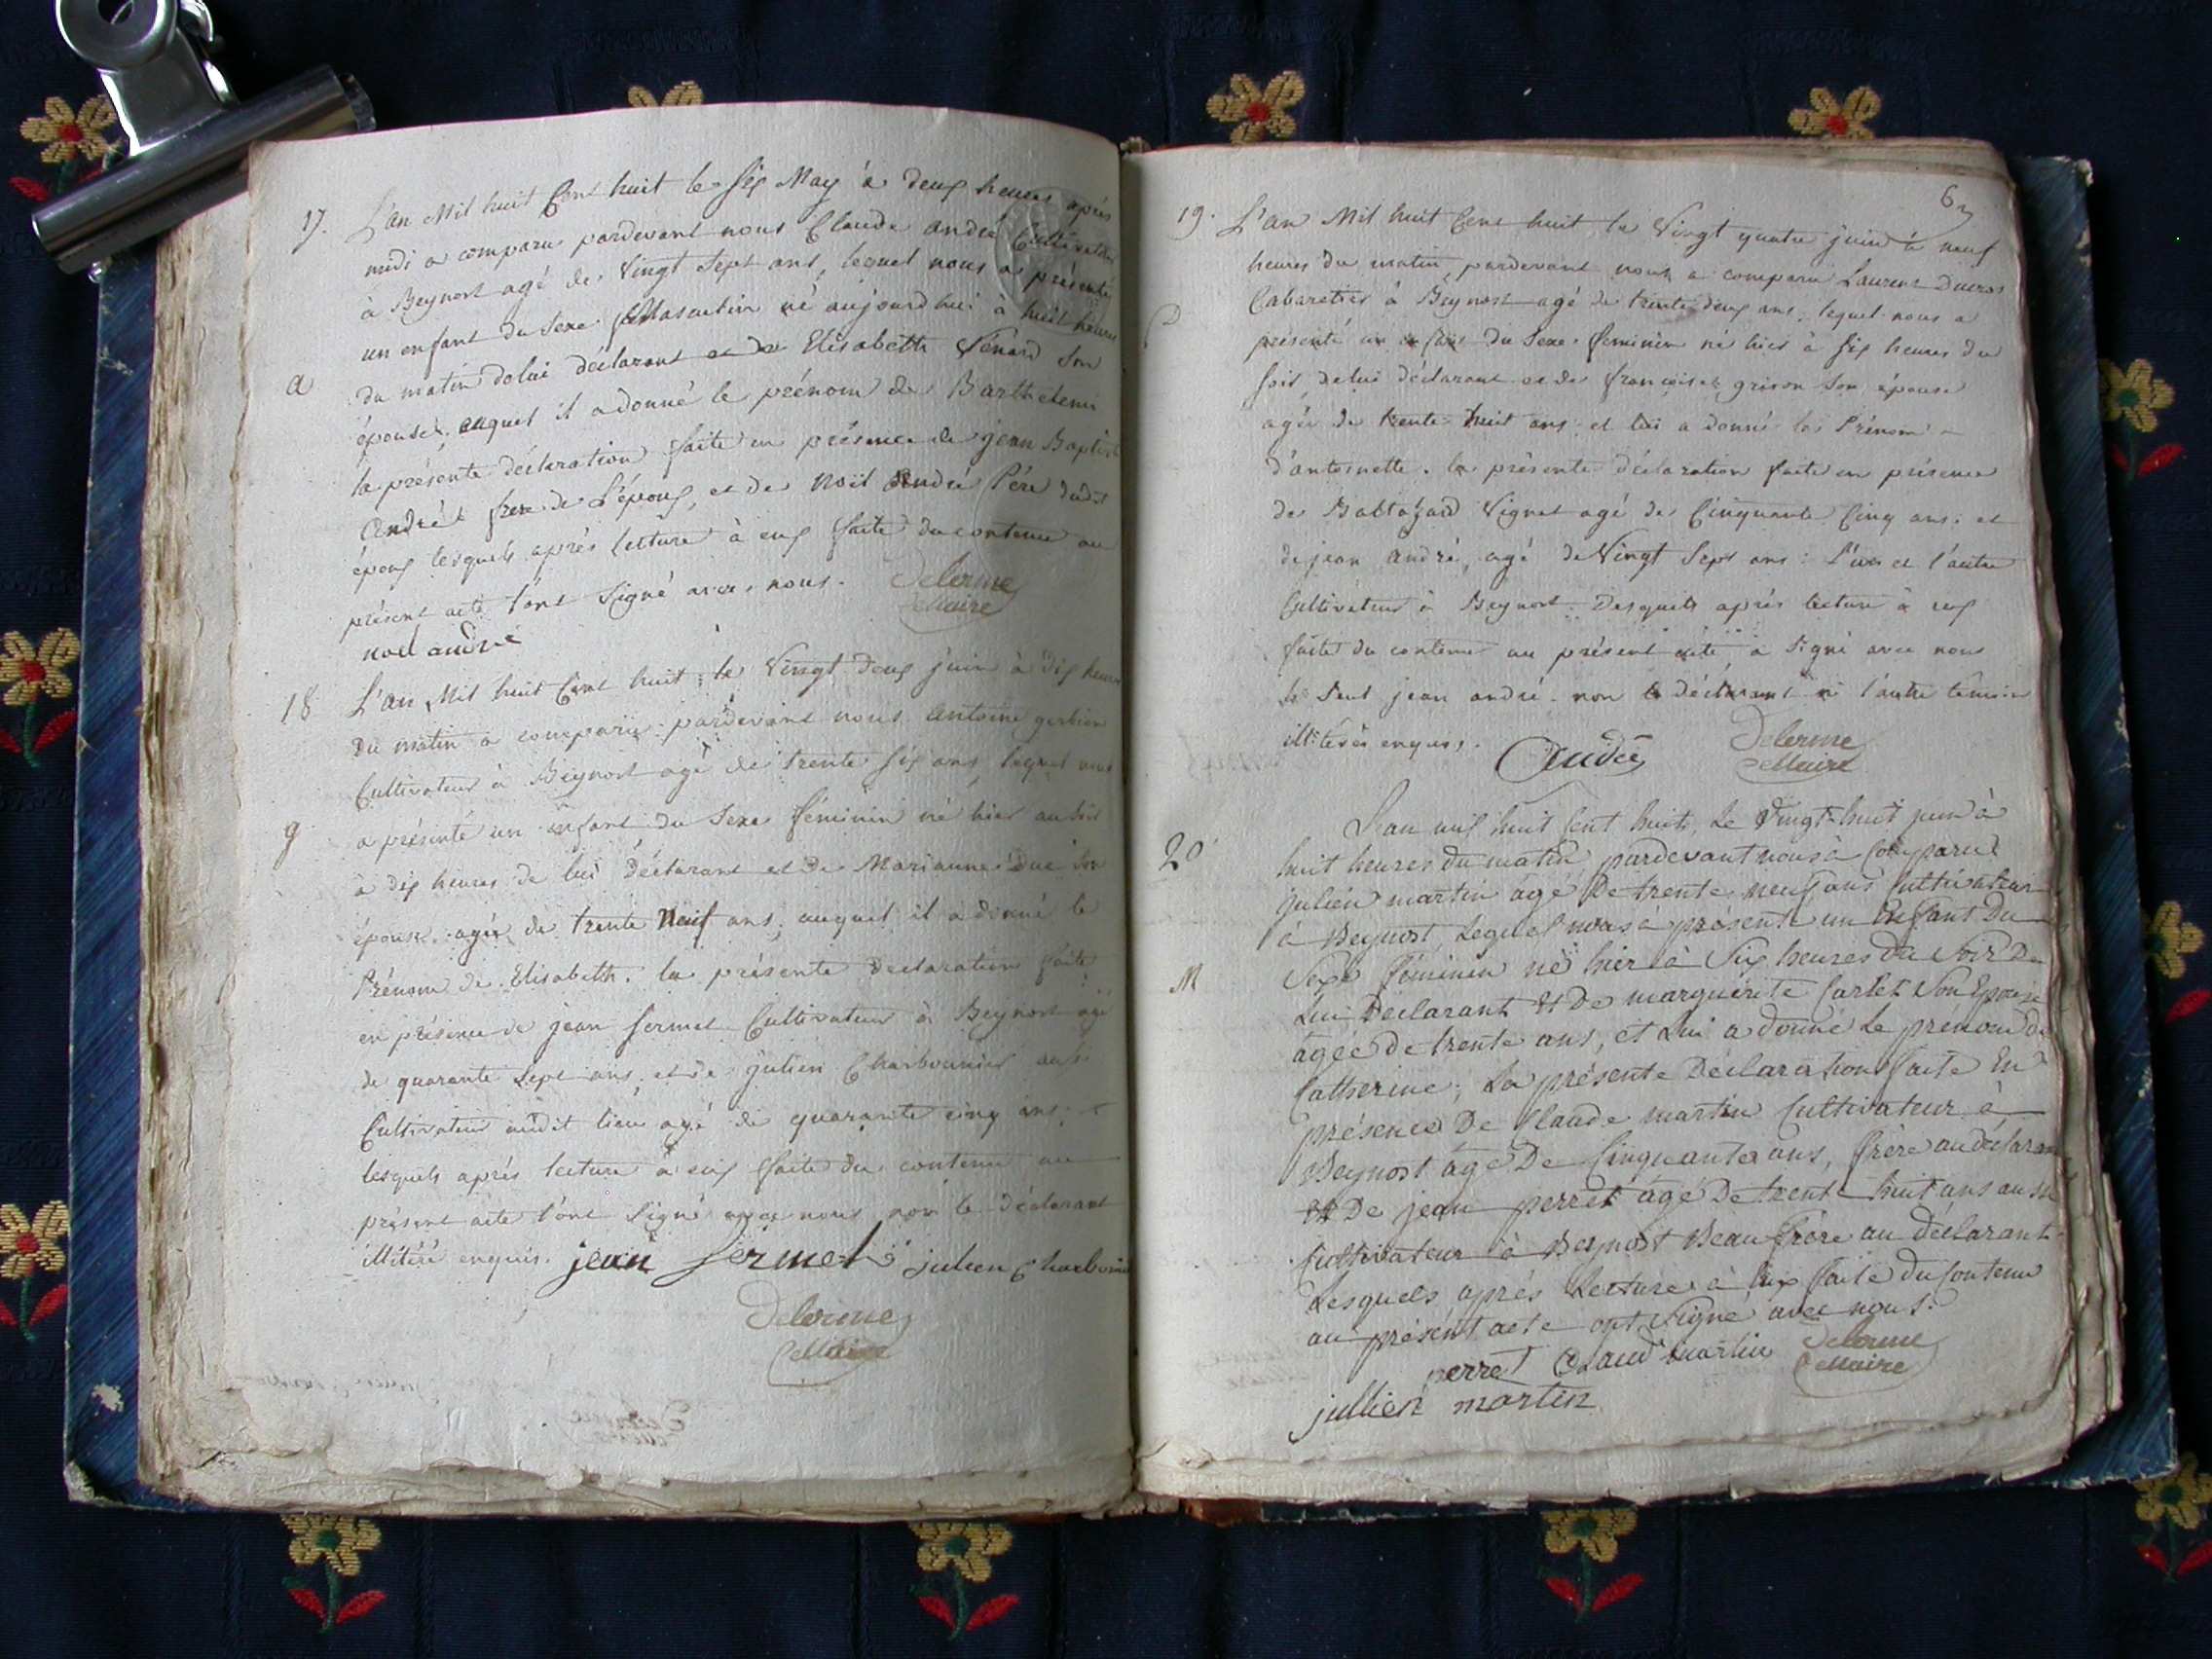 17. L'an Mil huit Cent huit le six May à deux heures après
midi a comparu pardevant nous Claude andré Cultivateur
à Beynost agé de Vingt Sept ans, lequel nous a présenté
un enfant du Sexe Masculin né aujourd'hui à huit heures
du matin de lui déclarant et de Elisabeth Venard Son
a
épouse. auquel il a donné le prénom de Barthelemi
la présente déclaration faite en présence de jean Baptiste
andré frere de L'époux, et de Noël André Pére dudit
époux lesquels après lecture à eux faite du contenu au
présent acte l'ont Signé avec nous. Delorme
Maire
noel andré
18 L'an Mil huit Cent huit, le Vingt deux juin à dix heures
du matin a comparu pardevant nous antoine
Cultivateur à Beynost agé de trente six ans, lequel nous
g
a présenté un enfant du Sexe féminin né hier au soir
à dix heures de lui déclarant et de Marianne Duc Son
épouse agée de trente Neuf ans, auquel il a donné le
Prénom de Elisabeth. la présente declaration faite
en présence de jean Sermet Cultivateur à Beynost agé
de quarante Sept ans, et de julien Charbonnier aussi
Cultivateur audit lieu agé de quarante cinq ans.
lesquels après lecture à eux faite du contenu au
présent acte l'ont Signé avec nous, non le déclarant
illitéré enquis. jean Sermet julien Charbonnier
Delorme
Maire
6
19. L'an Mil huit Cent huit, le Vingt quatre juin à neuf
heures du matin, pardevant nous a comparu Laurent Ducros
Cabaretier à Beynost agé de trente deux ans, lequel nous a
D
présenté un enfant du Sexe féminin né hier à six heures du
soir, de lui déclarant et de françoise grison Son épouse
agée de trente huit ans et lui a donné les Prénom
d'antoinette. la présente déclaration faite en présence
de Baltazard Vignet agé de Cinquante Cinq ans. et
de jean andré, agé de Vingt Sept ans: l'un et l'autre
Cultivateur à Beynost. Desquels après lecture à eux
faite du contenu au présent acte, a Signé avec nous
le Seul jean andré. non le déclarant ni l'autre témoin
illitérés enquis.
andré Delorme
Maire
L'an mil huit Cent huit, Le Vingt-huit juin à
20
huit heures du matin pardevant nous à Comparu
julien martin agé De trente neuf ans Cultivateur
à Beynost, Lequel nous à présenté un Enfant Du
Sexe féminin né hier à Six heures Du Soir De
M
Lui Déclarant Et De marguérite Carlet Son Epouse
agée De trente ans, et Lui a donné Le prénom de
Catherine, La présente Déclaration faite En
présence De Claude martin Cultivateur à
Beynost agé De Cinquante ans, frère au déclarant
Et De jean perret agé De trente huit ans aussi
Cultivateur à Beynost Beau frère au Déclarant.
Lesquels après Lecture à Eux faite du Contenu
au présent acte ont Signé avec nous.
perret Claud martin Delorme
Maire
jullien martin